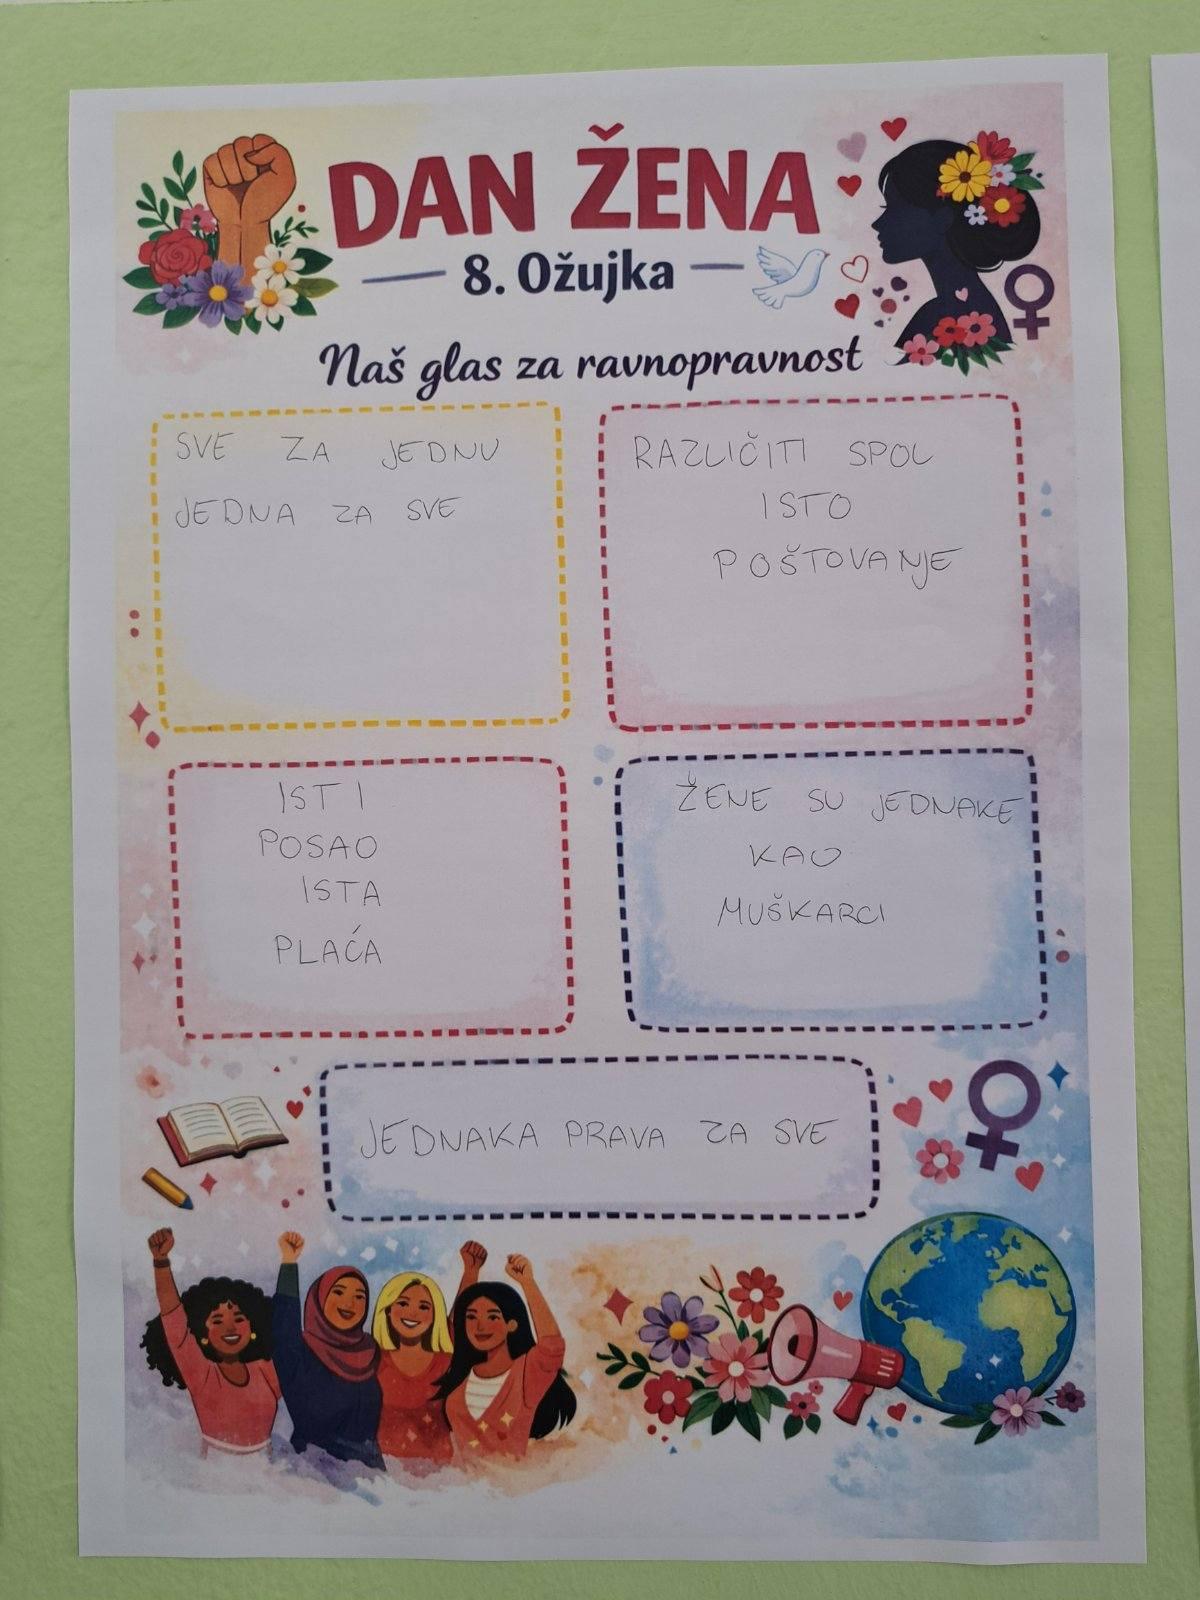 DAN ŽENA
8. Ožujka
Naš glas za ravnopravnost
SVE ZA JEDNU
JEDNA ZA SVE
RAZLIČITI SPOL
ISTO
POŠTOVANJE
ISTI
POSAO
ISTA
PLAĆA
ŽENE SU JEDNAKE
KAO
MUŠKARCI
JEDNAKA PRAVA ZA SVE